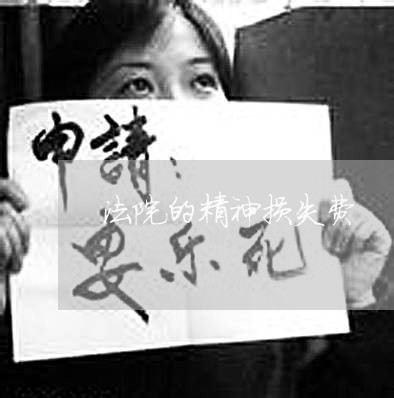 申請:
法院的精神损失费
要乐死